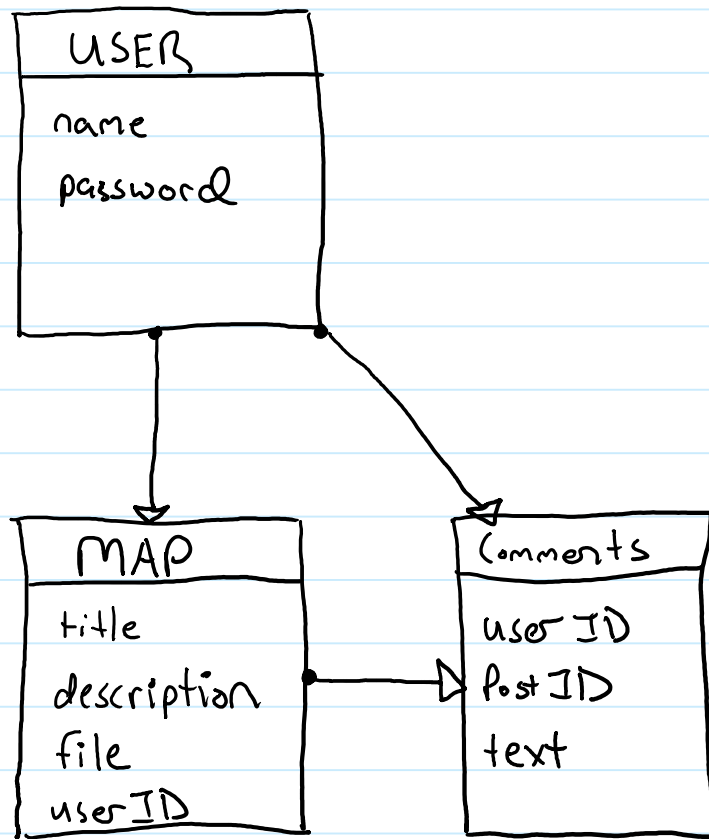 USER
name
password
MAP
title
description
file
userID
Comments
userID
PostID
text